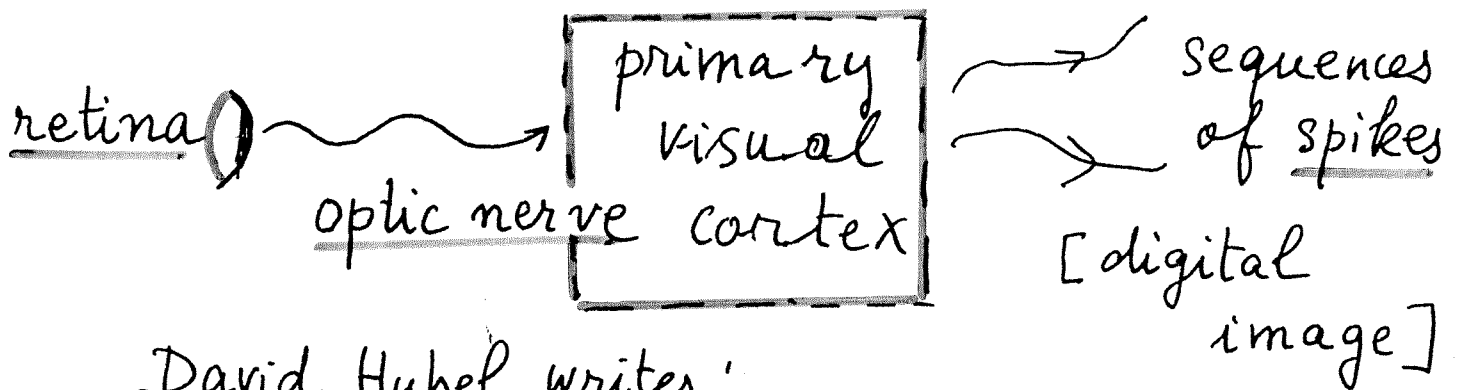 retina
optic nerve
primary
visual
cortex
sequences
of spikes
[digital
image]
David Hubel writes: